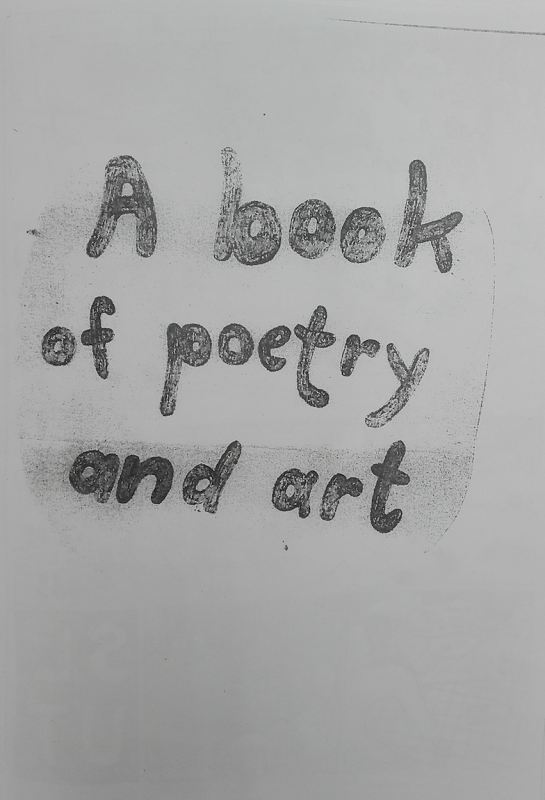 A book
of poetry
and art